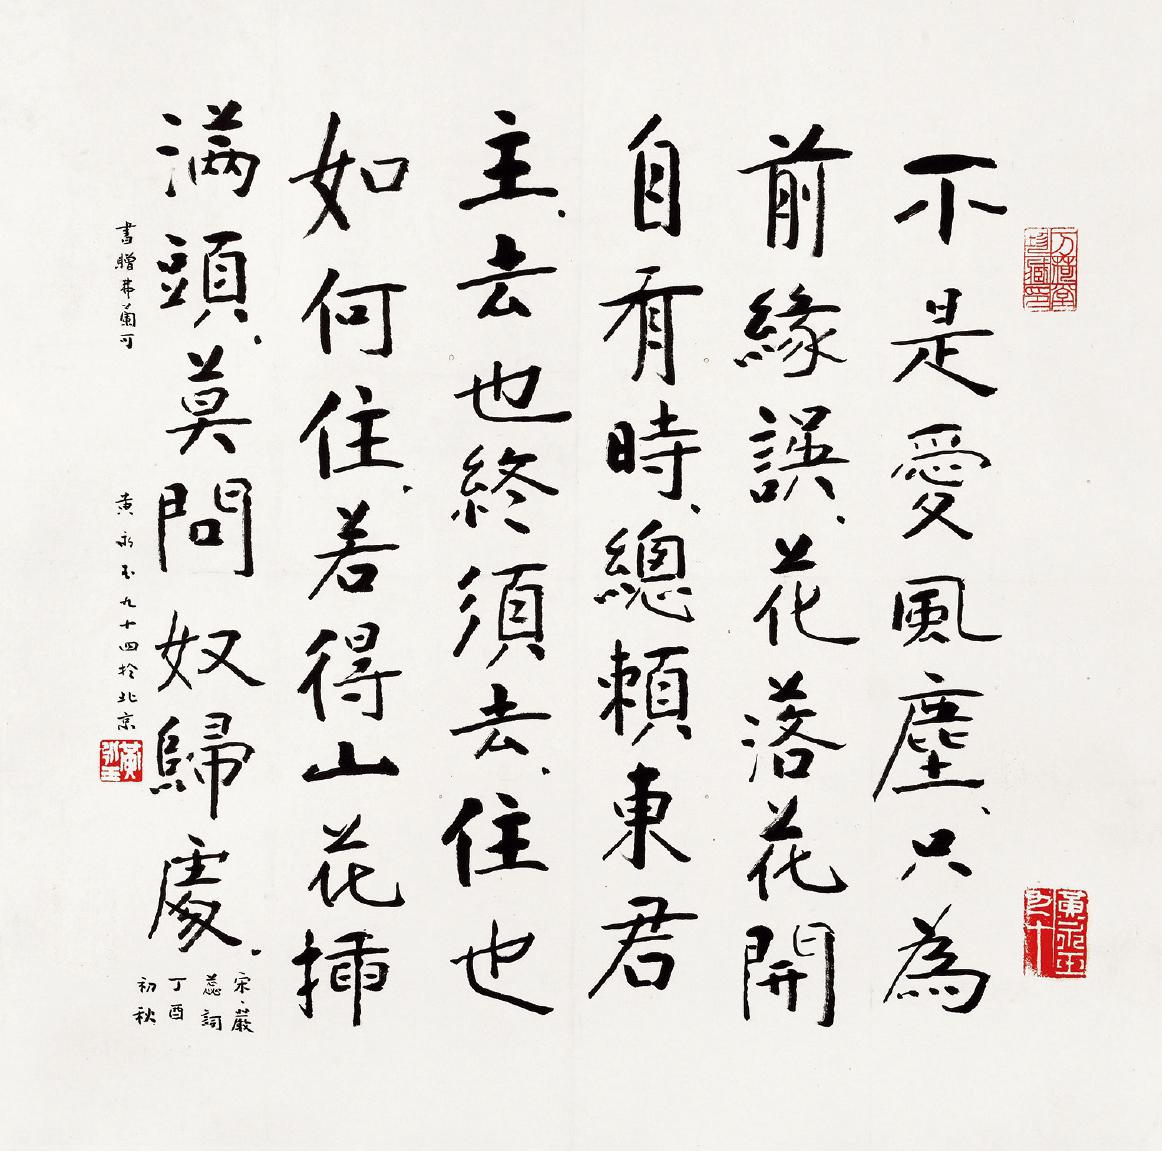 不是愛風塵、只為
前緣誤、花落花開
自有時、總賴東君
主、去也終須去、住也
如何住、若得山花插
满頭、莫問奴歸處、
宋、嚴
蕊詞
丁酉
初秋
書贈弗蘭可
黃永玉九十四於北京
黃永玉
万荷堂珍藏印